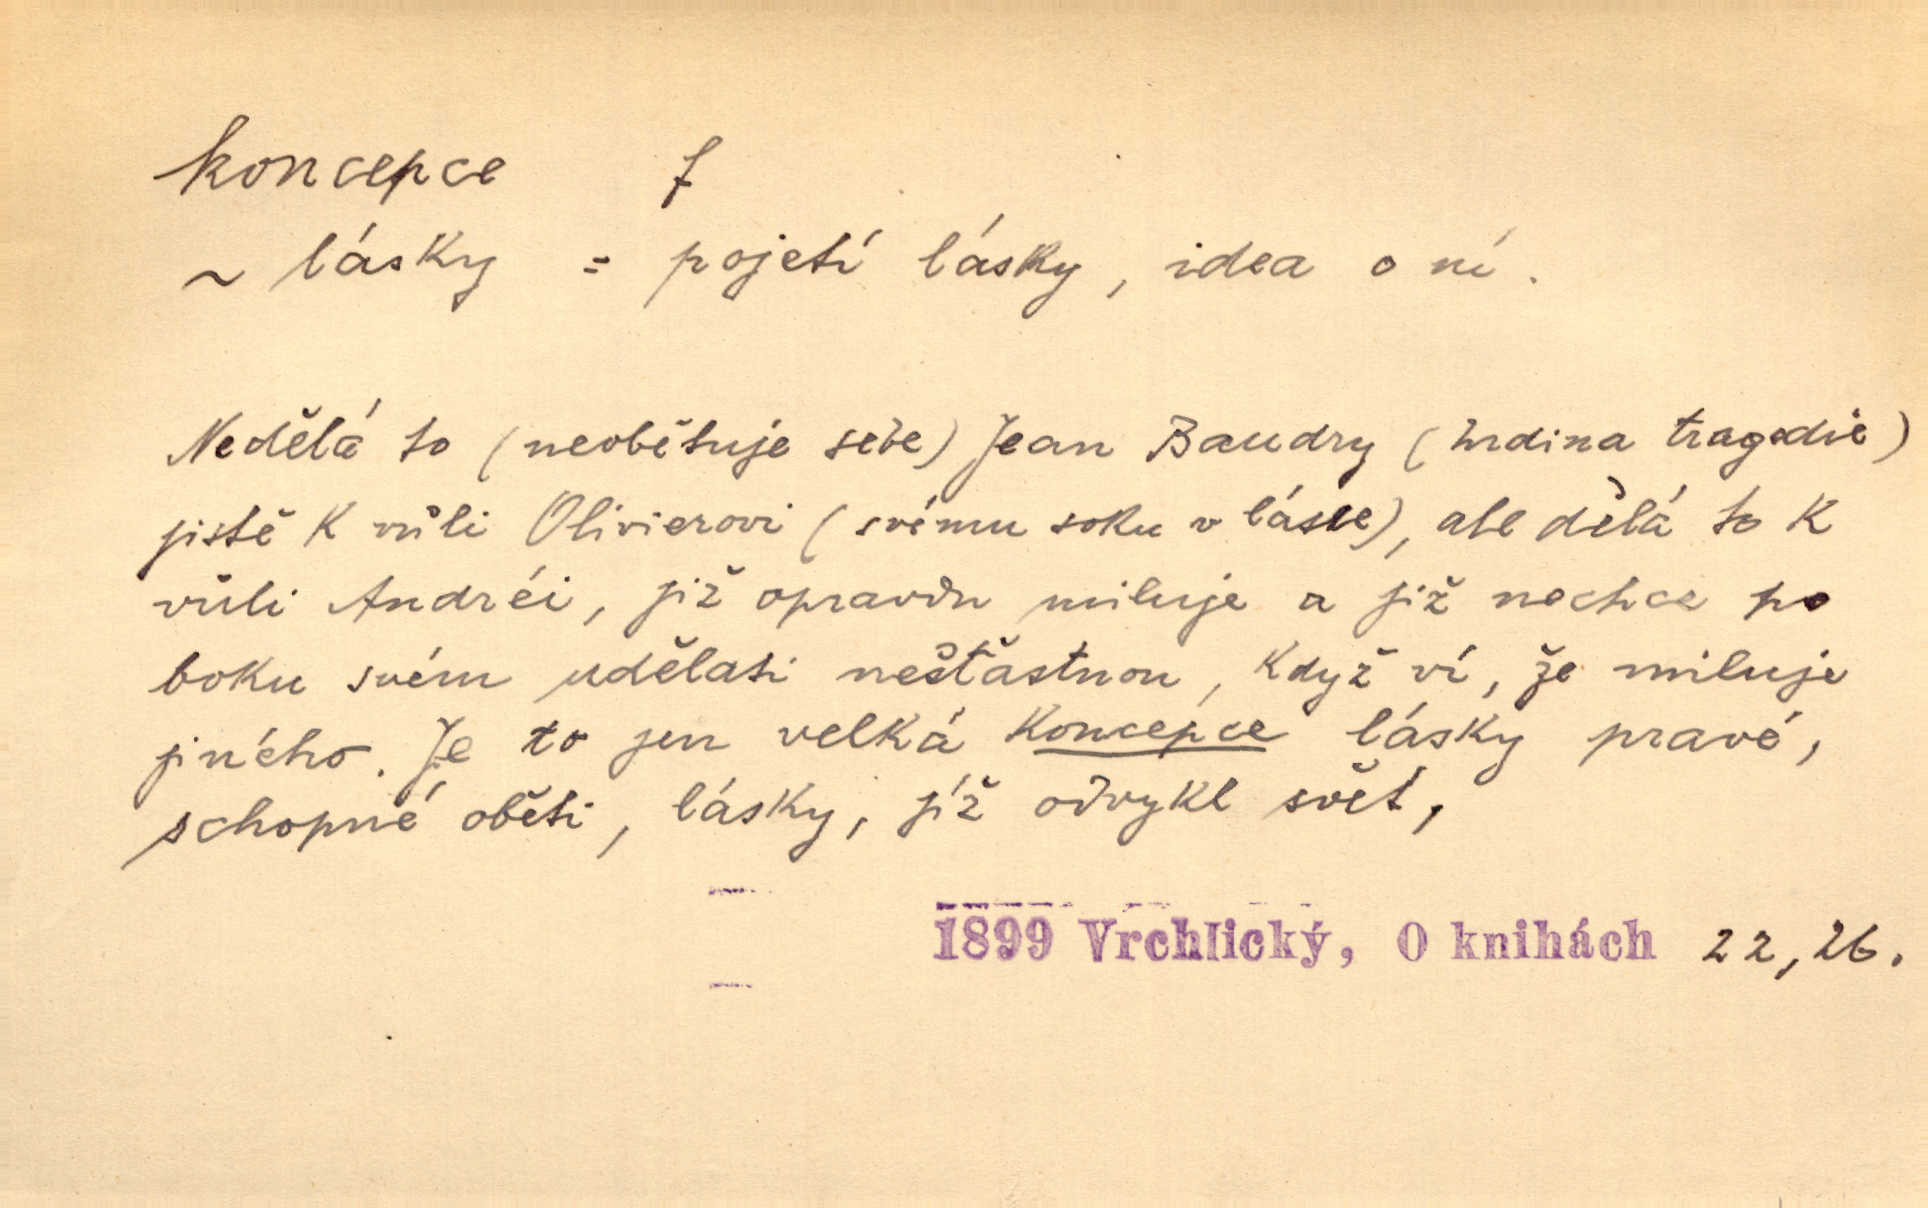 koncepce f
~ lásky = pojetí lásky, idea o ní.
Nedělá to (neobětuje sebe) Jean Baudry (hrdina tragedie)
jistě k vůli Olivierovi (svému soku v lásce), ale dělá to k
vůli Andréi, již opravdu miluje a již nechce po
boku svém udělati nešťastnou, když ví, že miluje
jiného. Je to jen velká koncepce lásky pravé,
schopné oběti, lásky, jíž odvykl svět,
1899 Vrchlický, O knihách 22, 26.